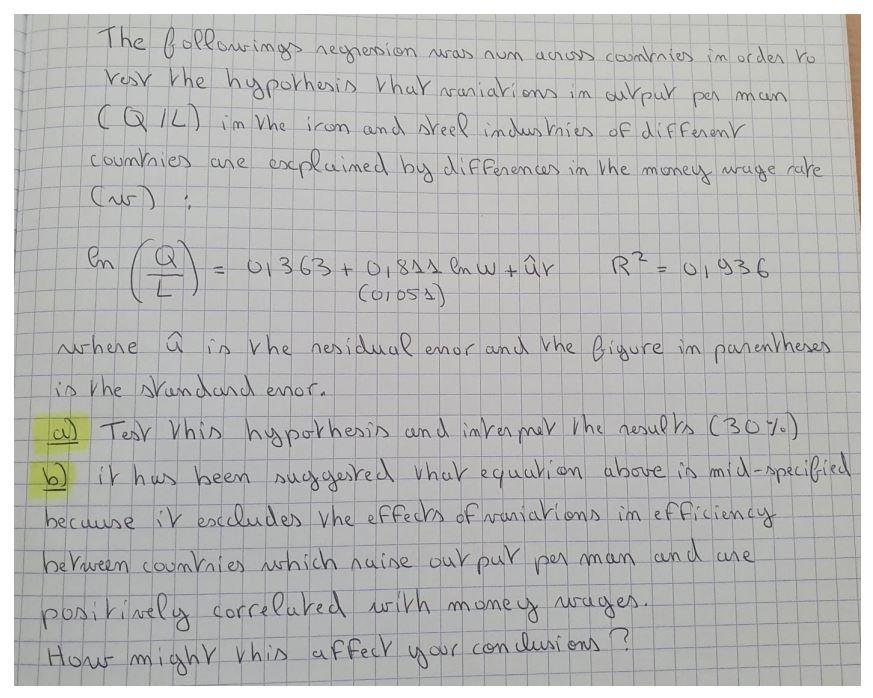 The followings regression was run across countries in order to
test the hypothesis that variations in output per man
(Q/L) in the iron and steel industries of different
countries are explained by differences in the money wage rate
(w) :
ln (Q/L) = 0,363 + 0,811 ln w + ûr R² = 0,936
(0,051)
where û is the residual error and the figure in parentheses
is the standard error.
a) Test this hypothesis and interpret the results (30%)
b) it has been suggested that equation above is mid-specified
because it excludes the effects of variations in efficiency
between countries which raise output per man and are
positively correlated with money wages.
How might this affect your conclusions?